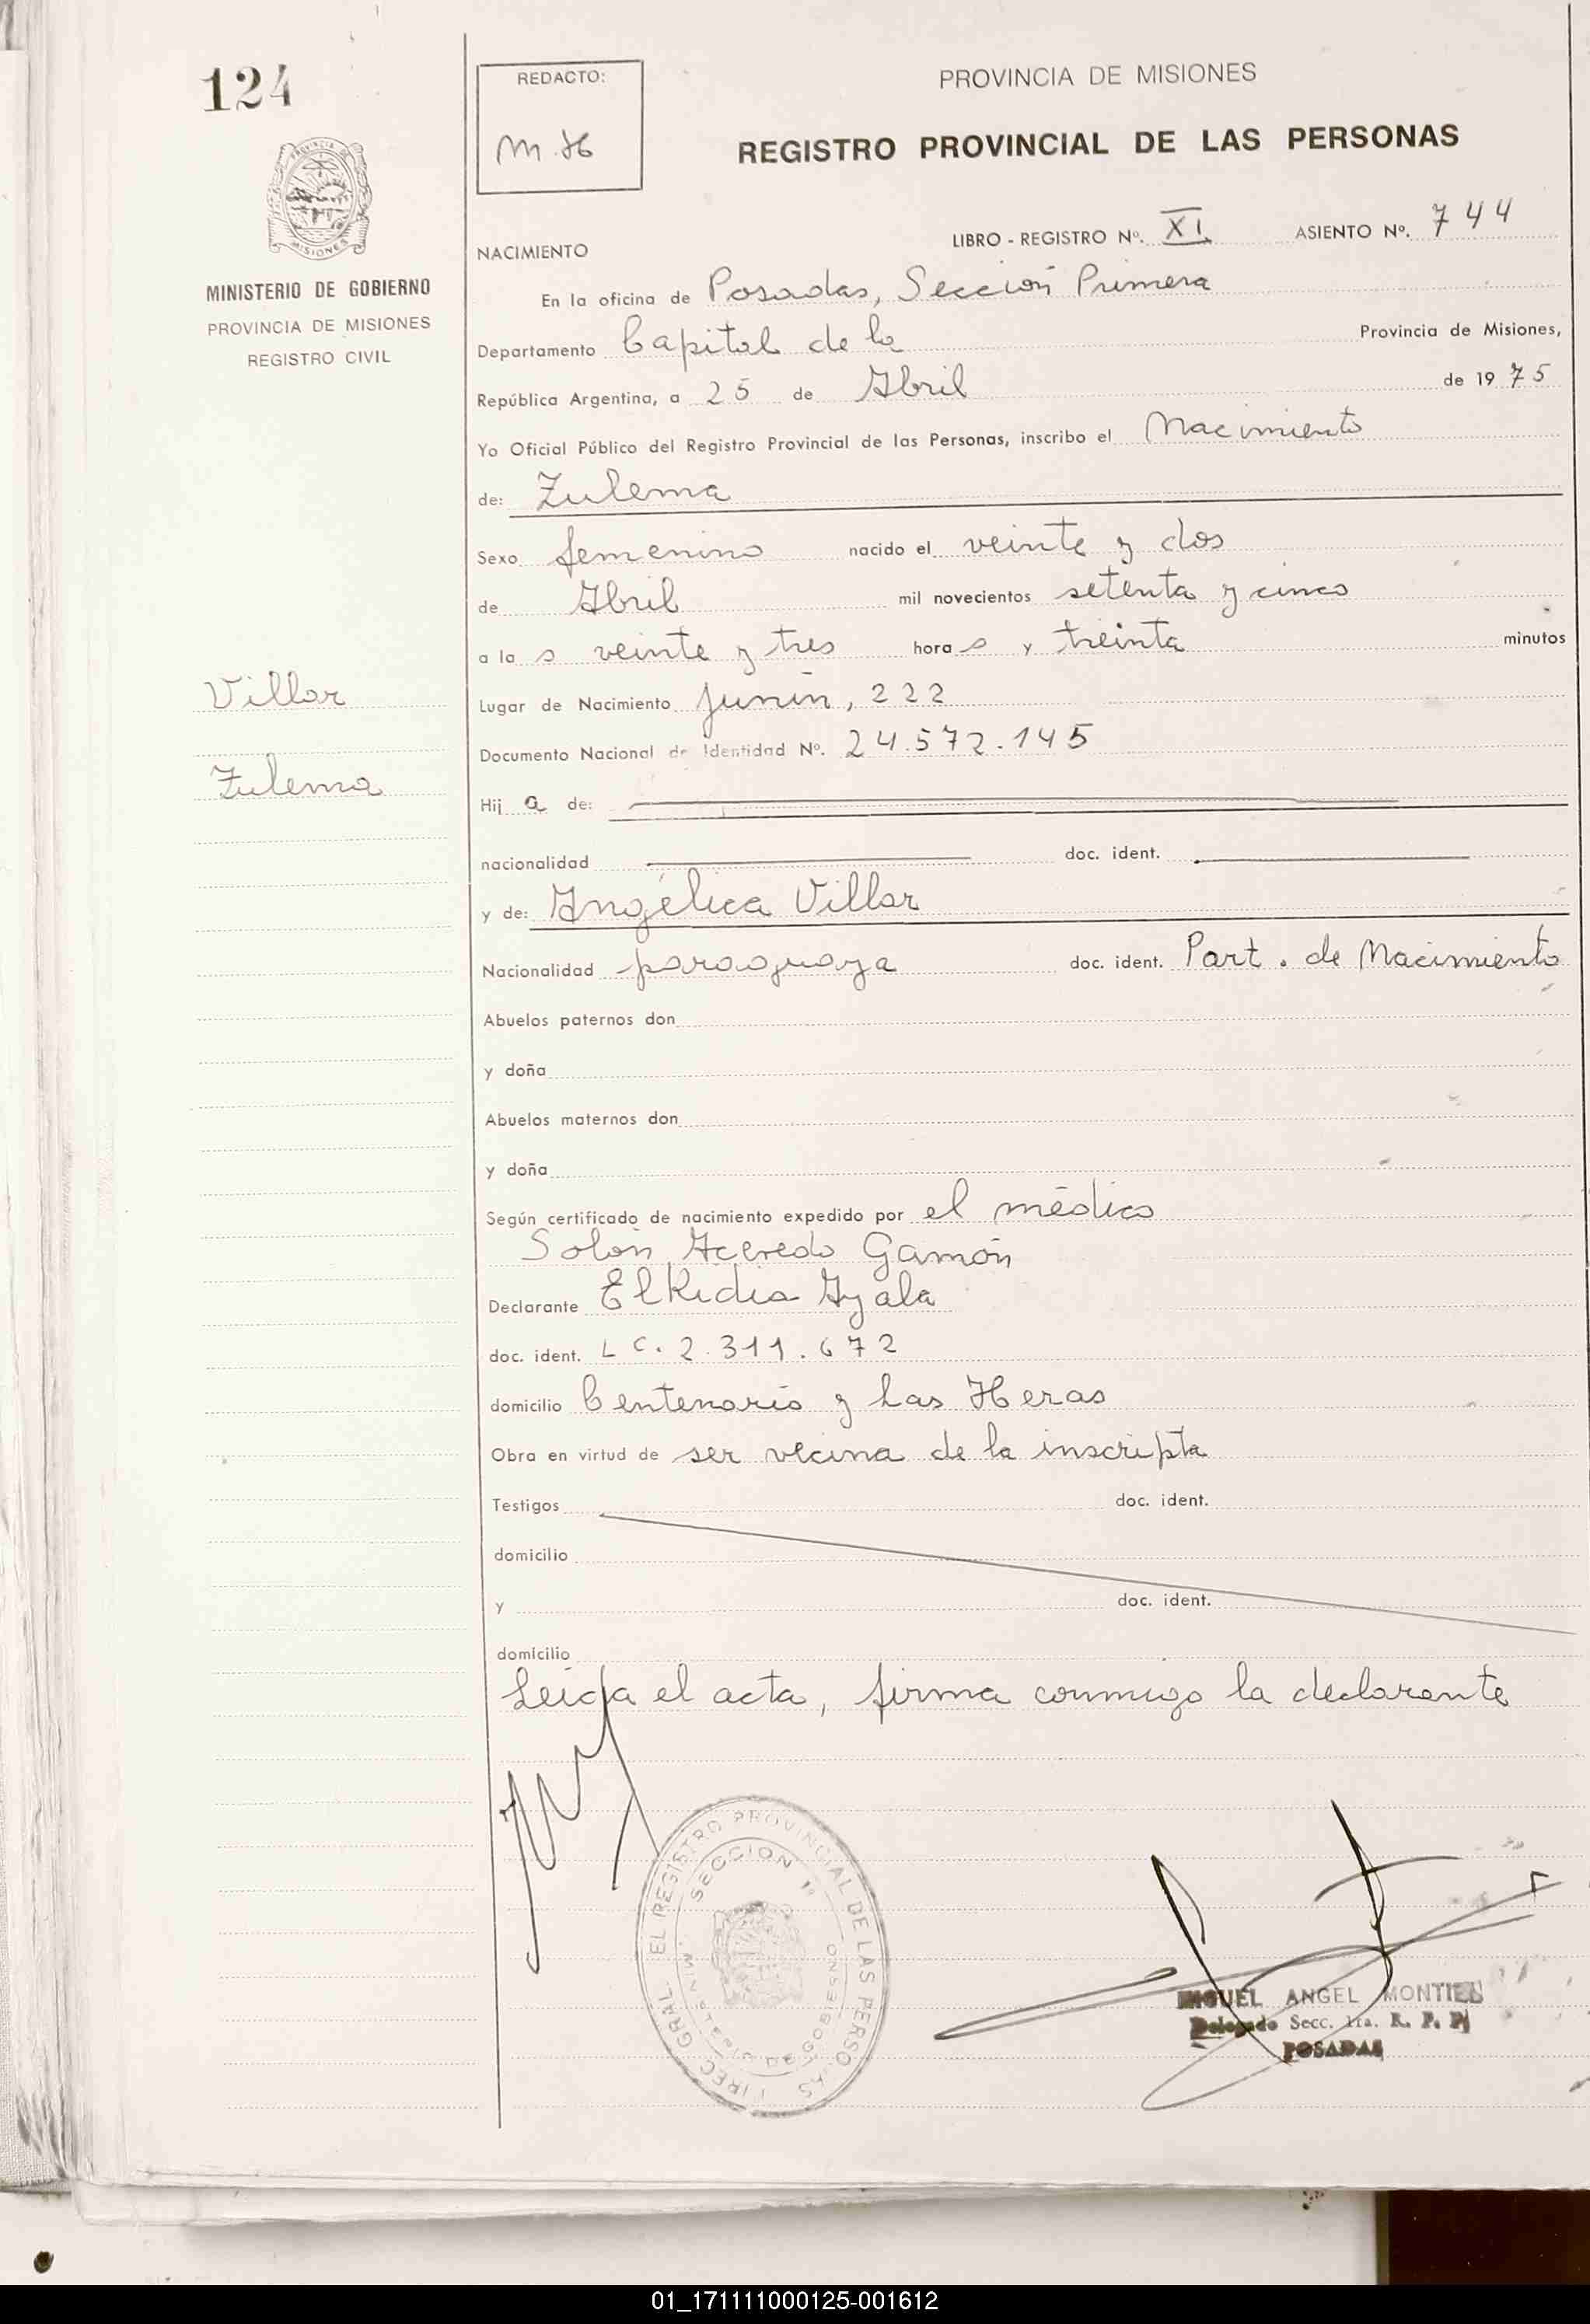 124
REDACTO:
M.H
PROVINCIA DE MISIONES
REGISTRO PROVINCIAL DE LAS PERSONAS
MISIONES
MINISTERIO DE GOBIERNO
PROVINCIA DE MISIONES
REGISTRO CIVIL
NACIMIENTO
LIBRO - REGISTRO Nº. XI ASIENTO Nº. 744
En la oficina de Posadas, Sección Primera
Departamento Capital de la Provincia de Misiones,
República Argentina, a 25 de Abril de 1975
Yo Oficial Público del Registro Provincial de las Personas, inscribo el Nacimiento
de: Zulema
Sexo femenino nacido el veinte y dos
de Abril mil novecientos setenta y cinco
a la s veinte y tres hora s y treinta minutos
Villar
Lugar de Nacimiento Junín, 222
Documento Nacional de Identidad Nº. 24.572.145
Zulema
Hij a de:
nacionalidad doc. ident.
y de: Angélica Villar
Nacionalidad paraguaya doc. ident. Part. de Nacimiento
Abuelos paternos don
y doña
Abuelos maternos don
y doña
Según certificado de nacimiento expedido por el médico
Solón Acevedo Gamón
Declarante Elkidia Ayala
doc. ident. L C. 2.311.672
domicilio Centenario y Las Heras
Obra en virtud de ser vecina de la inscripta
Testigos doc. ident.
domicilio
y doc. ident.
domicilio
Leída el acta, firma conmigo la declarante
DIREC. GRAL. EL REGISTRO PROVINCIAL DE LAS PERSONAS
SECCION 1ª
MINISTERIO DE GOBIERNO
MIGUEL ANGEL MONTIEL
Delegado Secc. 1ra. R. P. P.
POSADAS
01_171111000125-001612